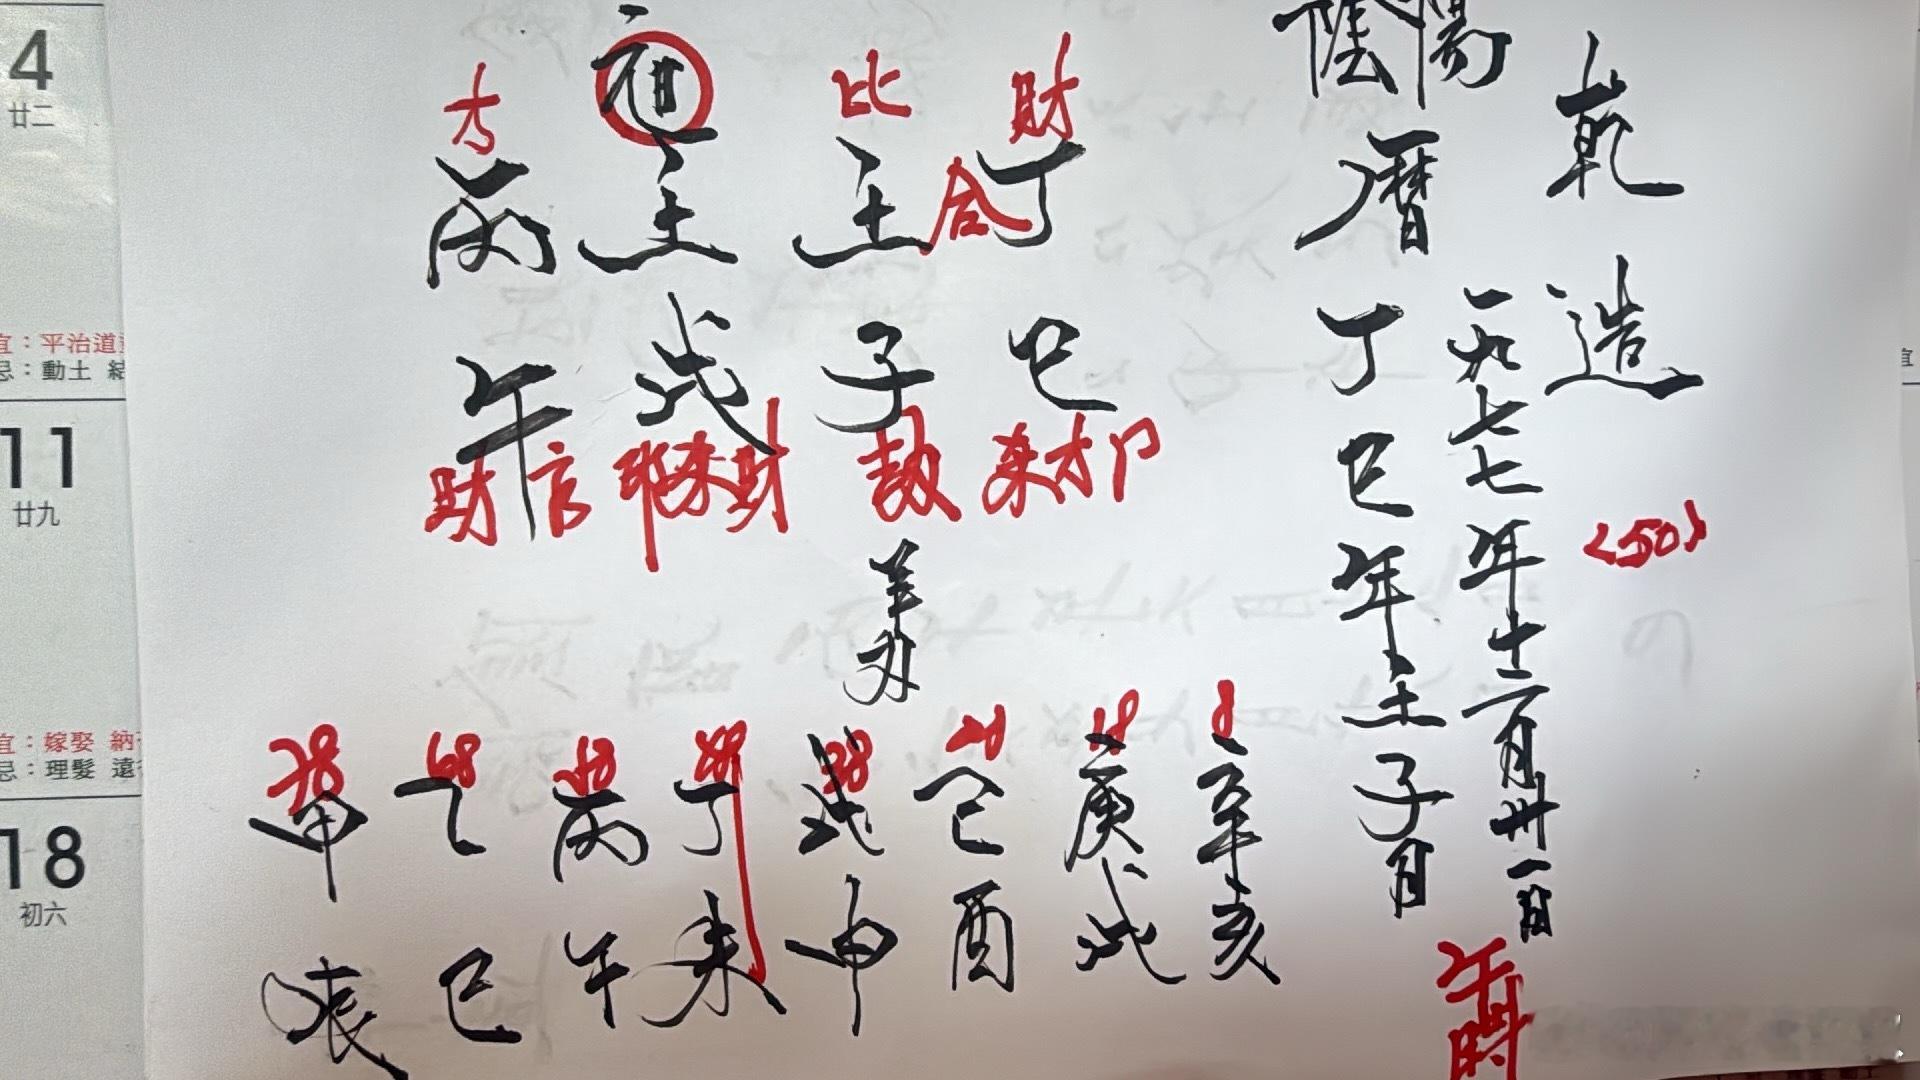 乾造
<50>
陽
一九七七年十二月卅一日
午時
陰
曆
丁巳年壬子月
財
比
才
丁
合
壬
壬
丙
巳
子
戌
午
杀才卩
劫
卩杀財
財官
羊刃
8
18
28
38
48
58
68
78
辛亥
庚戌
己酉
戊申
丁未
丙午
乙巳
甲辰
4
廿二
宜：平治道
忌：動土
11
廿九
宜：嫁娶 納
忌：理髮
18
初六
宜